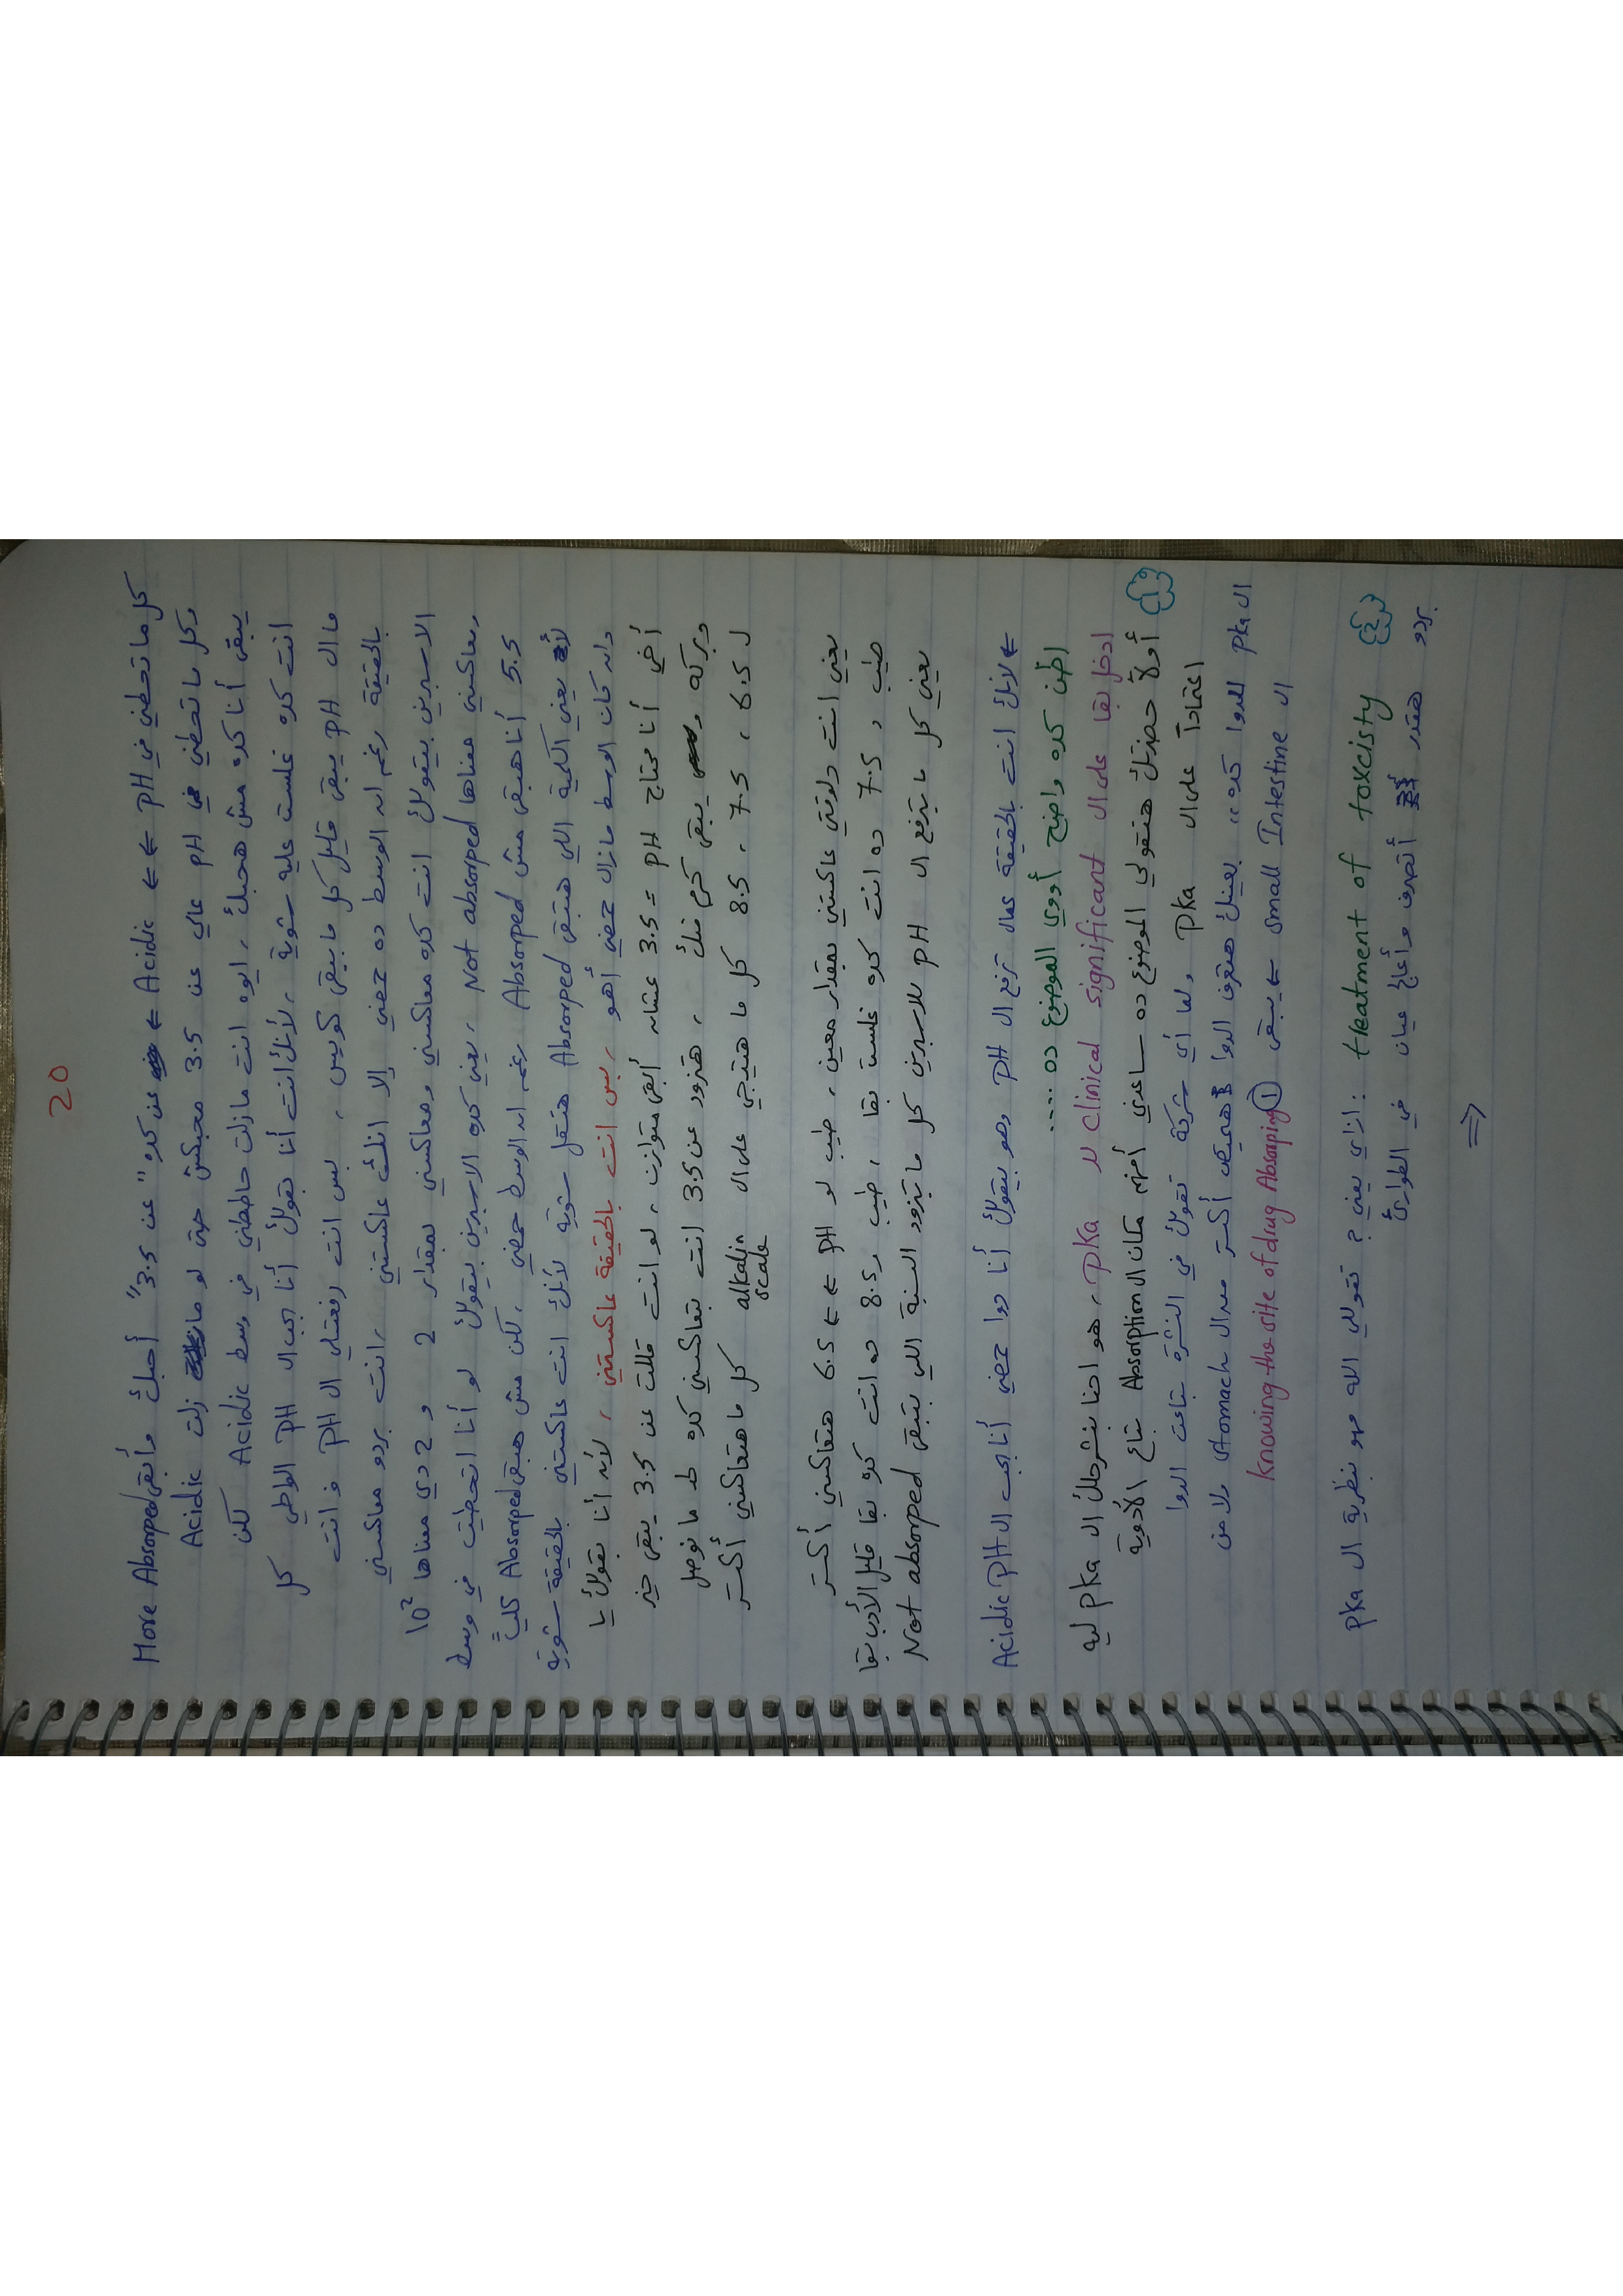 20
كل ما تحطني في pH ← ← Acidic ← عن كده "عن 3.5" أحبك وأبقى More Absorped
وكل ما تحطني في pH عالي عن 3.5 محبكش حتى لو ما زلت Acidic
يبقى أنا كده مش هحبك، ايوه انت مازلت حاططني في وسط Acidic لكن
انت كده غلست عليه شوية، لأنك انت أنا بقولك أنا بحب ال PH الواطي كل
ما ال PH يبقى قليل كل ما يبقى كويس، بس انت رفعتلي ال PH فانت
بالحقيقة رغم انه الوسط ده حمضي إلا انك عاكستني، انت بردو معاكسني
الاسبرين بيقولك انت كده معاكسني ومعاكسني بمقدار 2 و 2 دي معناها 10²
ومعاكسني معناها Not absorped، يعني كده الاسبرين بيقولك لو أنا اتحطيت في وسط
5.5 أنا هبقى مش Absorped رغم انه الوسط حمضي، لكن مش هبقى Absorped كليًا
لأ يعني الكمية اللي هتبقى Absorped هتقل شوية لأنك انت عاكستني بالحقيقة شوية
وانه كان الوسط مازال حمضي أهو، بس انت بالحقيقة عاكستني، لأنه أنا بقولك يا
أخي أنا محتاج PH = 3.5 عشانه أبقى متوازن، لو انت قللت عن 3.5 يبقى خير
وبركه ويبقى كرم منك، هتزود عن 3.5 انت بتعاكسني كده لحد ما نوصل
ل 6.5، 7.5، 8.5 كل ما هتيجي على ال alkalin scale كل ما هتعاكسني أكتر
يعني انت دلوقتي عاكستني بمقدار معين، طيب لو PH ← ← 6.5 هتعاكسني أكتر
طيب و 7.5 ده انت كده غلست بقا، طيب و 8.5 ده انت كده بقا قليل الأدب بقا
يعني كل ما بترفع ال PH للاسبرين كل ما بتزود النسبة اللي بتبقى Not absorped
← لانك انت بالحقيقة عمال ترفع ال PH وهو بيقولك أنا دوا حمضي أنا بحب ال Acidic PH
اظن كده واضح أووي الموضوع ده .....
ادخل بقا على ال clinical significant لل Pka، هو احنا بنشرحلك ال pka ليه
① أولاً حضرتك هتقولي الموضوع ده ساعدني أفهم مكان ال Absorption بتاع الأدوية
اعتماداً على ال Pka ولما أي شركة تقولك في النشرة بتاعت الدوا
ال Pka للدوا كده،، بعينك هتعرف الدوا هيمتص أكتر من ال stomach ولا من
ال small Intestine ← يبقى ① knowing the site of drug Absorping
② treatment of toxcisty : ازاي يعني ؟ تقولي الله مهو نظرية ال pka
بردو هتقدر أتصرف وأعالج عيان في الطوارئ
⇒